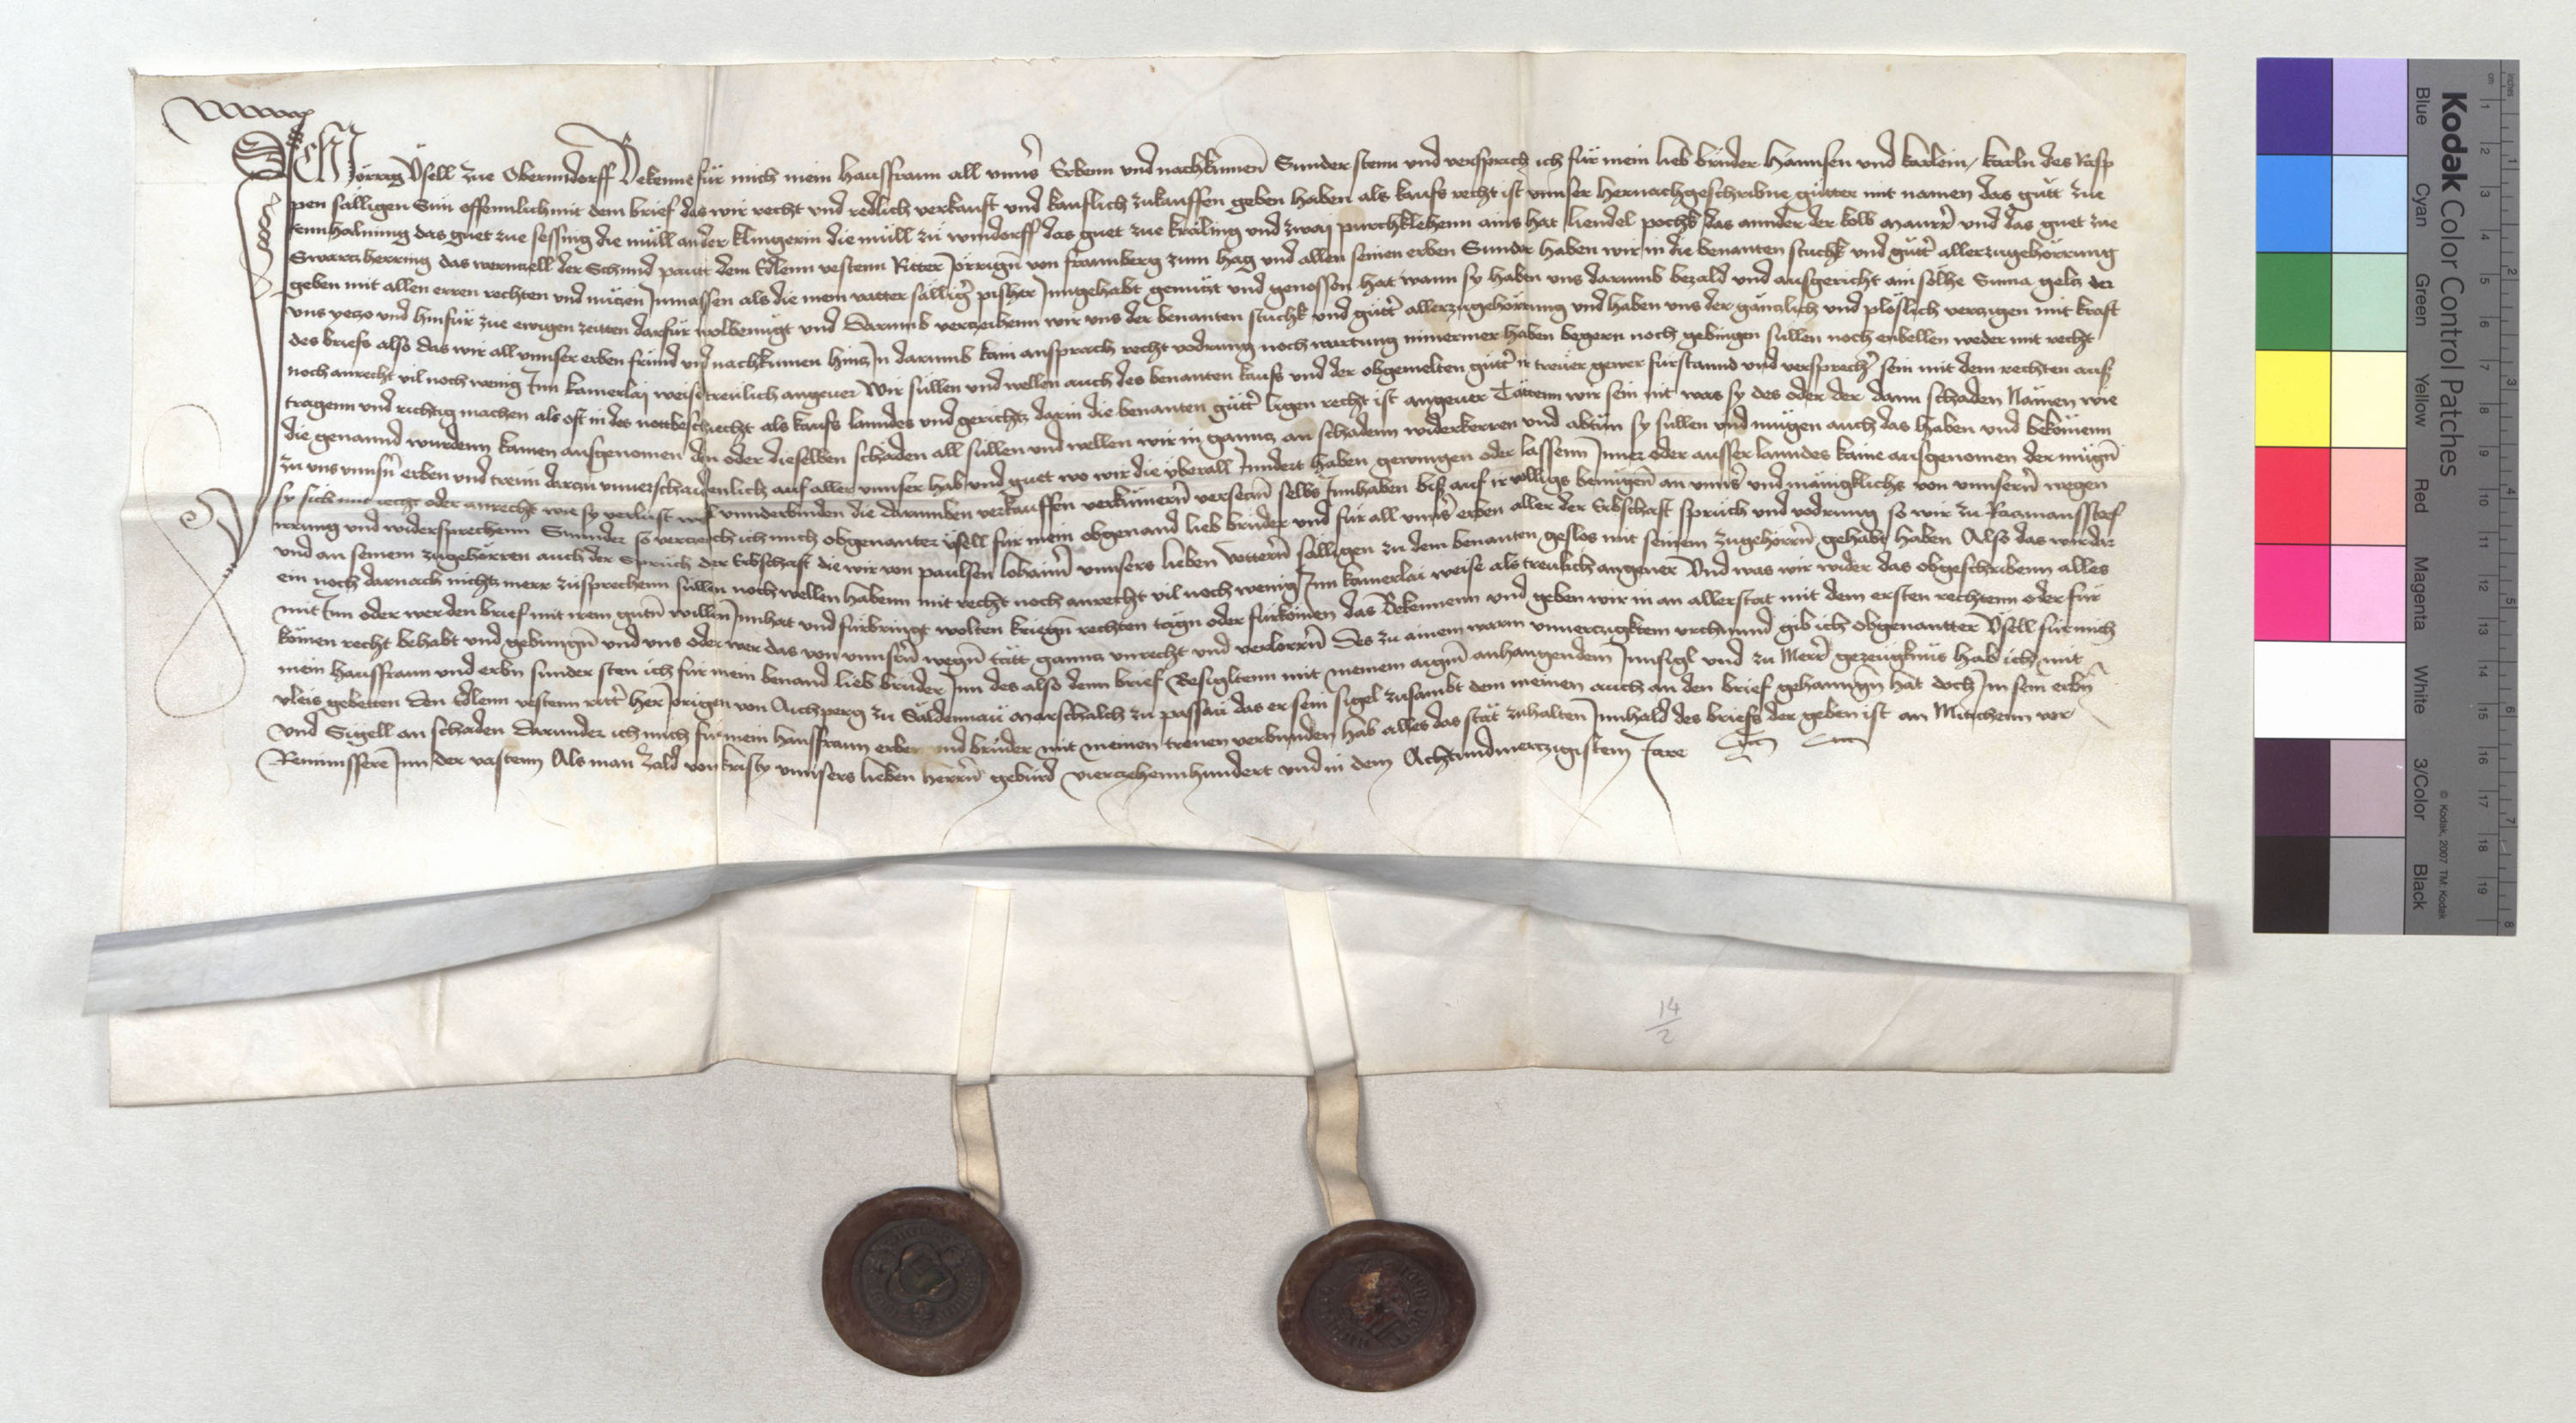 Ich Jörrg Üsell zue Oberrndorff Bekenne für mich mein hausfraun all vnns Erbenn vnd nachkumen Sunder stenn vnd versprich ich für mein lieb brüder Hannsen vnd karlein karln des
pen sälligen Sün offennlich mit dem brief das wir recht vnd redlich verkauft vnd kauflich zukauffen geben haben als kaufs recht ist vnnser hernachgeschribne gütter mit namen das gütt zue
das guet zue sessing die müll an der klingerin die müll zu winndorff das guet zue kräling vnd zwaj purchklehenn ains hat hendel das annder der kolb maurer vnd das guet zue
Swartzherring das der Schmid paut dem Edlenn vestenn Ritter Jörrign von fraunberg zum hag vnd allen seinen erben Sunder haben wir in die benanten stuckh vnd gütter allerzugehörrung
geben mit allen erren rechten vnd nützen Inmassen als die mein vatter sällig pisher Inngehabt genützt vnd genossen hat wann sy haben vns darumb bezald vnd ausgericht ain solhe Suma geltz der
vns yezo vnd hinfür zue ewigen zeitten darfür wolbenügt vnd Darumb verzeihenn wir vns der benanten stuckh vnd gütter allerzugehörrung vnd haben vns der gäntzlich vnd plöslich verzigen mit kraft
des briefs also das wir all vnnser erben fründ vnd nachkumen hintz In darumb kain ansprach recht vodrung noch wartung nimermer haben begern noch gebingen süllen noch enbellen weder mit recht
noch anrecht vil noch wenig Inn kainerlaj weise treulich angeuer Wir süllen vnd wellen auch des benanten kaufs vnd der obgemelten gütter ir treuer gewer fürstannd vnd versprecher sein mit dem rechten aus
tragenn vnd richtig machen als oft in des nott beschiecht als kaufs lanndes vnd gerichtz darin die benanten gütter ligen recht ist angeuer Tättenn wir sein nit was sy des oder der dann schaden Nämen wie
die genannd wurdenn kainen ausgenomen den oder dieselben schäden all süllen vnd wellen wir in ganntz an schadenn widerkerren vnd abtün sy süllen vnd mügen auch das haben vnd bekömenn
zu vns vnnsern erben vnd treun darzu vnuerschaidenlich auf aller vnnser hab vnd guet wo wir die überall Inndert haben gewingen oder lassenn Inner oder ausser lanndes kaine ausgenomen der mügen
sy sich mit recht oder anrecht wie sy verlust vnnderbinden die darumben verkauffen verkümern versetzn selbs Innhaben bis auf ir völligs benügen an vnns vnd mäingklichs von vnnsern wegen
irrung vnd widersprechenn Sunnder so verzeich ich mich obgenanter üsell für mein obgenand lieb brüder vnd für all vnns erben aller der Erbschaft sprüch vnd vodrung so wir zu Razmansstorf
vnd an seinem zugehörren auch der Sprüch der Erbschaft die wir von paulsen vnnsers lieben vettern sälligen zu dem benanten geslos mit seinem zugehörrn gehabt haben Also das wir dar
ein noch darnach nichtz merr zusprechenn süllen noch wellen habenn mit recht noch anrecht vil noch wenig Inn kainerlai weise als treulich angeuer Vnd was wir wider das obgeschribenn alles
mit Inn oder wer den brief mit irem gutn willen Innhat vnd fürbringt wolten kriegn rechten tägn oder fürkömen das Bekennenn vnd geben wir in an allerstat mit dem ersten rechtenn oder für
kömen recht behabt vnd gebunngn vnd vns oder wer das von vnnsern wegn tätt ganntz vnrecht vnd verlorrn Des zu ainem warm vnuerzugktem vrchunnd gib ich obgenantter Üsell für mich
mein hausfraun vnd erbn sunder sten ich für mein benand lieb brüder Inn des also denn brief Besigltenn mit meinem aign anhangendem Innsigl vnd zu Merer gezeugknüs hab ich mit
vleis gebetten den Edlenn vestenn ritter her Jörigen von Aichperg zu Säldennau marschalch zu passau das er sein sigel zusambt dem meinen auch an den brief gehanngn hat doch Im sein erbn
vnd Sigell an schaden Darunder ich mich für mein hausfraun erben vnd brüder mit meinen treuen verbunden hab alles das stät zuhalten Innhald des briefs der geben ist an Mitichenn vor
Reminissere Inn der vastenn Als man zald von kristy vnnsers lieben herrn gebürd vierzehennhundert vnd in dem Achtundvierzigistem Jare
14
2
Kodak Color Control Patches
Blue Cyan Green Yellow Red Magenta White 3/Color Black
© Kodak, 2007 TM: Kodak
cm 1 2 3 4 5 6 7 8 9 10 11 12 13 14 15 16 17 18 19
inches 1 2 3 4 5 6 7 8